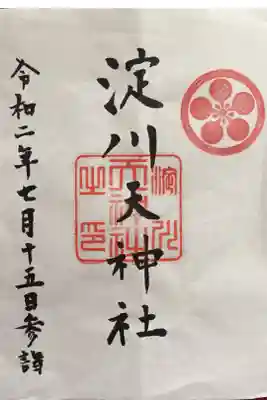 淀川天神社
令和二年七月十五日参詣